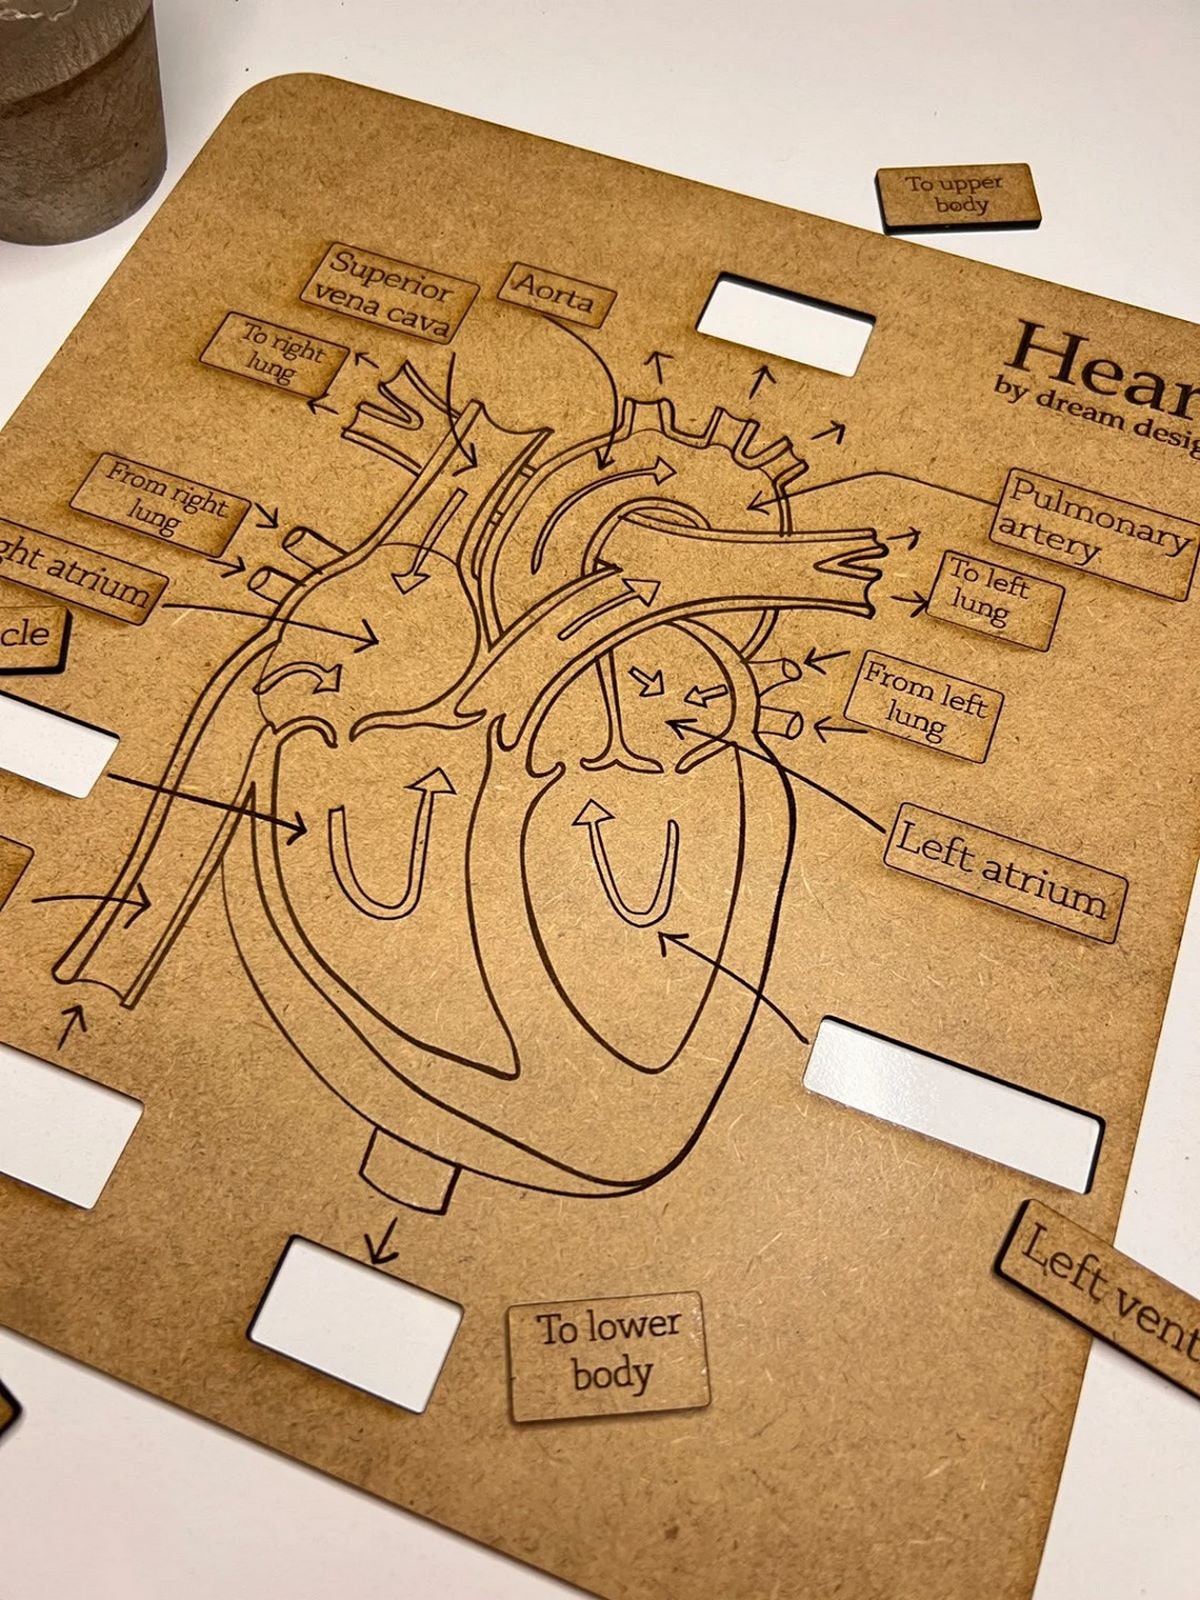 To upper
body
Superior
vena cava
Aorta
To right
lung
by dream
Pulmonary
artery
From right
lung
To left
lung
atrium
From left
lung
Left atrium
Left
To lower
body